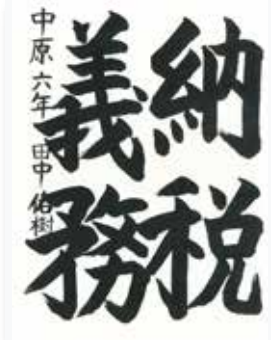 納税
義務
中原六年 田中佑樹